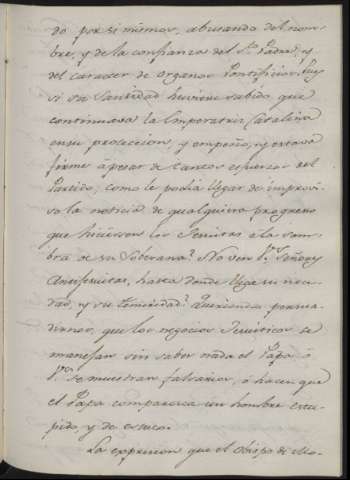 do por si mismos, abusando del nom-
bre, y de la confianza del S.to Padre, y
del caracter de Organos Pontificios. Pues
si su Santidad huviese sabido, que
continuava la Emperatriz Catalina
en su proteccion, y empeño, y estava
firme à pesar de tantos esfuerzos del
Partido; como le podia llegar de improvi-
so la noticia de qualquiera progreso
que hiciesen los Jesuitas à la som-
bra de su Soberana? No ven V.s Señores
Antijesuitas, hasta donde llega su nece-
dad, y su temeridad? Queriendo persua-
dirnos, que los negocios Jesuiticos se
manejan sin saber nada el Papa ò
V.s se muestran falsarios, ò hacen que
el Papa comparezca un hombre estu-
pido, y de estuco.
La expresion que el Obispo de Mo-